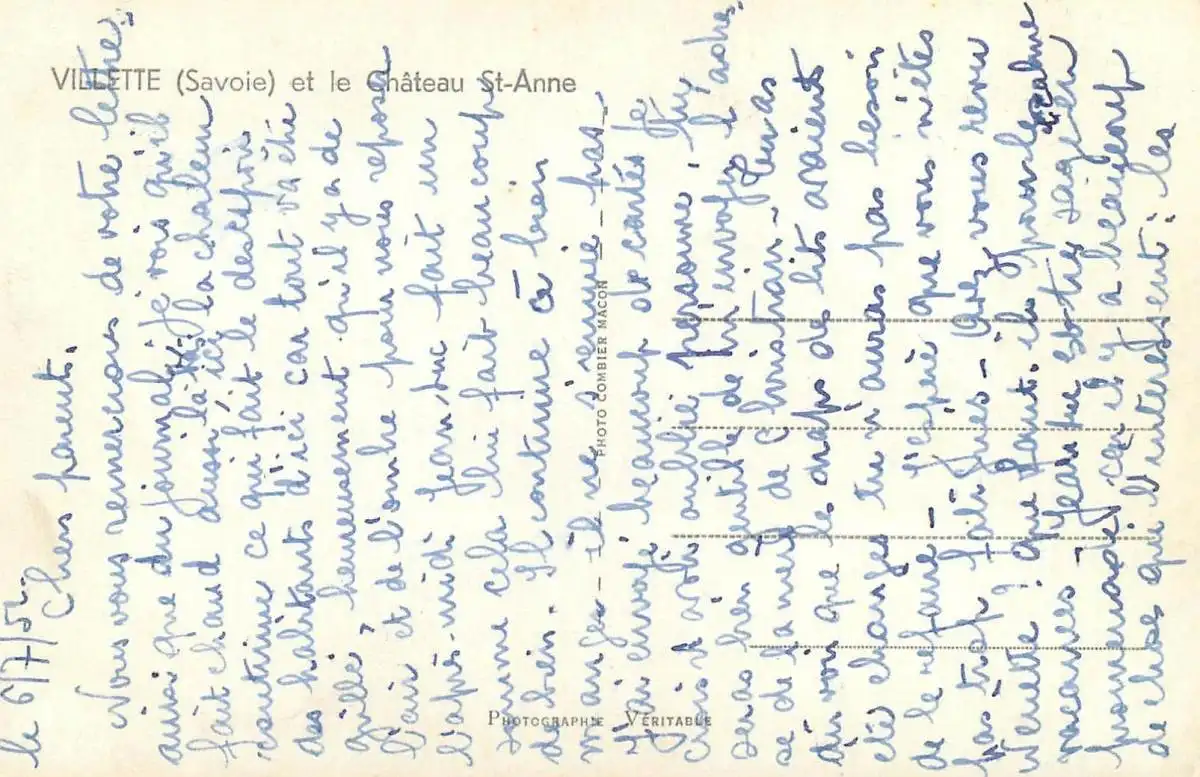 VILLETTE (Savoie) et le Château St-Anne
PHOTO COMBIER MACON
PHOTOGRAPHIE VÉRITABLE
le 6/7/5
Chers parents.
Nous vous remercions de votre lettre,
ainsi que du journal. Je vois qu'il
fait chaud aussi là ici, la chaleur
ce qui fait le desespoir
des habitants d'ici car tout va être
grillé, heureusement qu'il y a de
l'air et de l'ombre pour nous reposer
l'après-midi. Jean-Luc fait un
somme cela lui fait beaucoup
de bien. Il continue à bien
manger - il ne s'ennuie pas.
J'ai envoyé beaucoup de cartes je
crois n'avoir oublié personne, tu
seras bien gentille de m'envoyer l'adres
se de la mety de Christian - Tu as
dû voir que les draps de lits avaient
été changés tu n'auras pas besoin
de le refaire - J'espère que vous n'êtes
pas trop fatigués - Avez vous revu
que font-ils pour le
vacances - Jean-Luc est très sage en
promenade, car il y a beaucoup
de choses qui l'intéressent: les